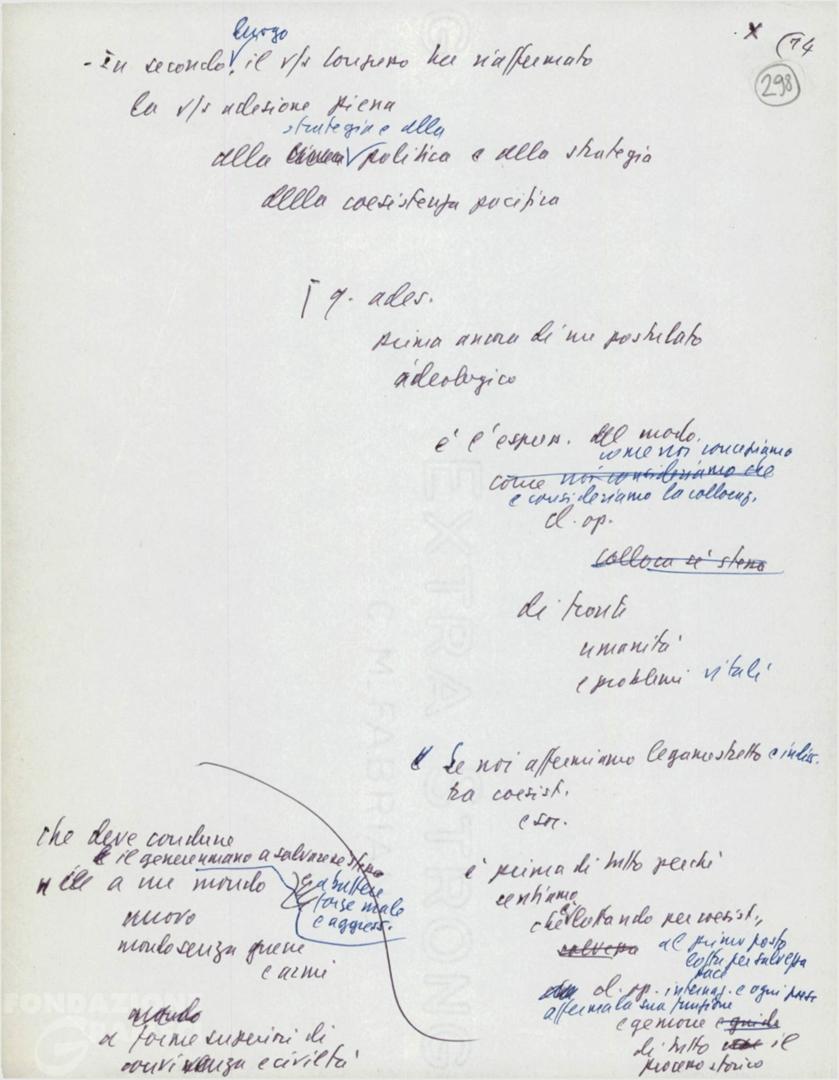 x (74
298
luogo
- In secondo, il v/s Congresso ha riaffermato
la v/s adesione piena
strategia e alla
alla politica e alla strategia
della coesistenza pacifica
q. ades.
prima ancora di un postulato
ideologico
è l'espress. del modo
come noi concepiamo
come noi consideriamo che
e consideriamo la collocaz.
cl. op.
colloca sé stessa
di fronte
umanità
e problemi vitali
E Se noi affermiamo legame stretto e indiss.
tra coesist.
e soc.
è prima di tutto perché
sentiamo
che lottando per coesist.,
salvezza al primo posto
lotta per salvezza
pace
cl. op. internaz. e ogni paese
afferma la sua funzione
egemone e guida
di tutto il
processo storico
che deve condurre
il genere umano a salvare se stesso
a un mondo
a battere
forze male
e aggress.
nuovo
mondo senza guerre
e armi
mondo
a forme superiori di
convivenza e civiltà
EXTRA STRONG
C. M. FABRIA
FONDAZIONE